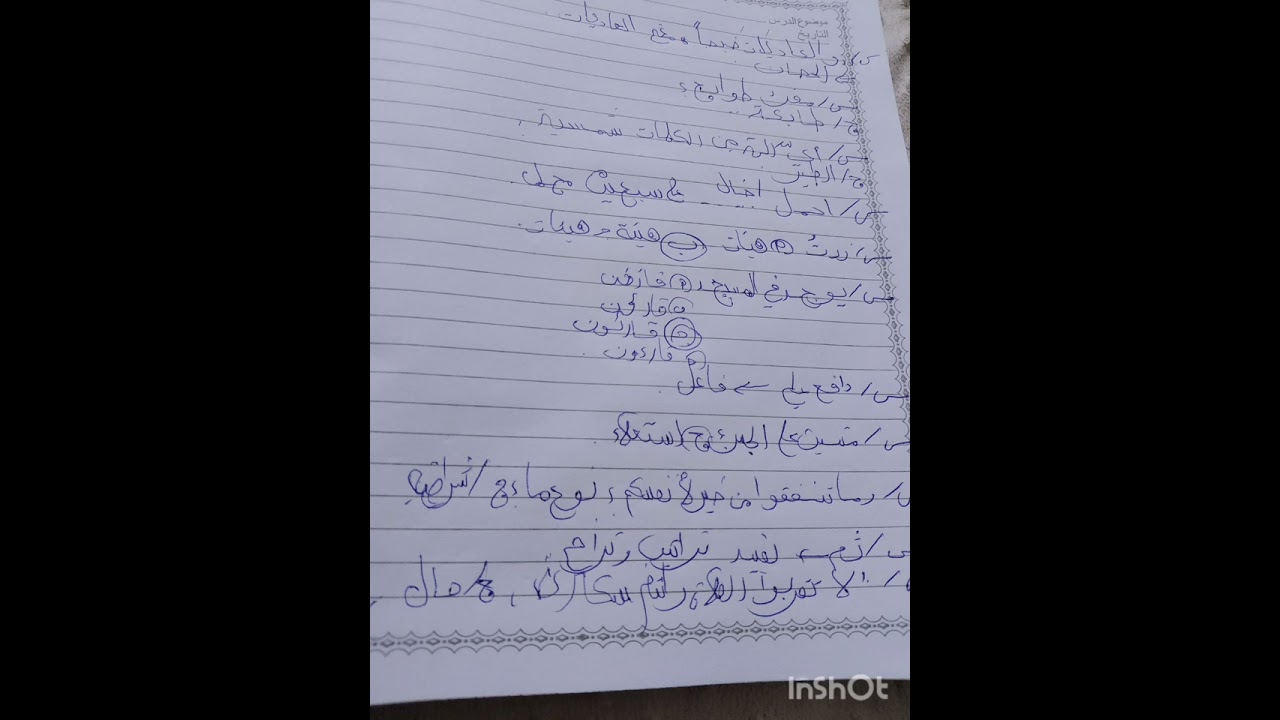 موضوع الدرس
التاريخ
س/ والعاديات ضبحاً، مع العاديات
ج الحصان
س/ مفرد طوابع؟
ج/ طابعة
س/ أي كلمة من الكلمات شمسية؟
ج/ الطير
س/ احمل اخيال ... ج سبعين محمل
س/ زرتُ هيئات ب هيئة وهيئات.
س/ يوجد في المسجد قارئين
قارئين
قارئون
قارءون
س/ دافع يلي فاعل
س/ مشيت على الجسر ج استعلاء
س/ وما تنفقوا من خير لأنفسكم، نوع ما، ج/ شرطية
س/ ثم تفيد تراتيب وتراخ
س/ لا تقربوا الصلاة وانتم سكارى، ج/ حال
InShOt